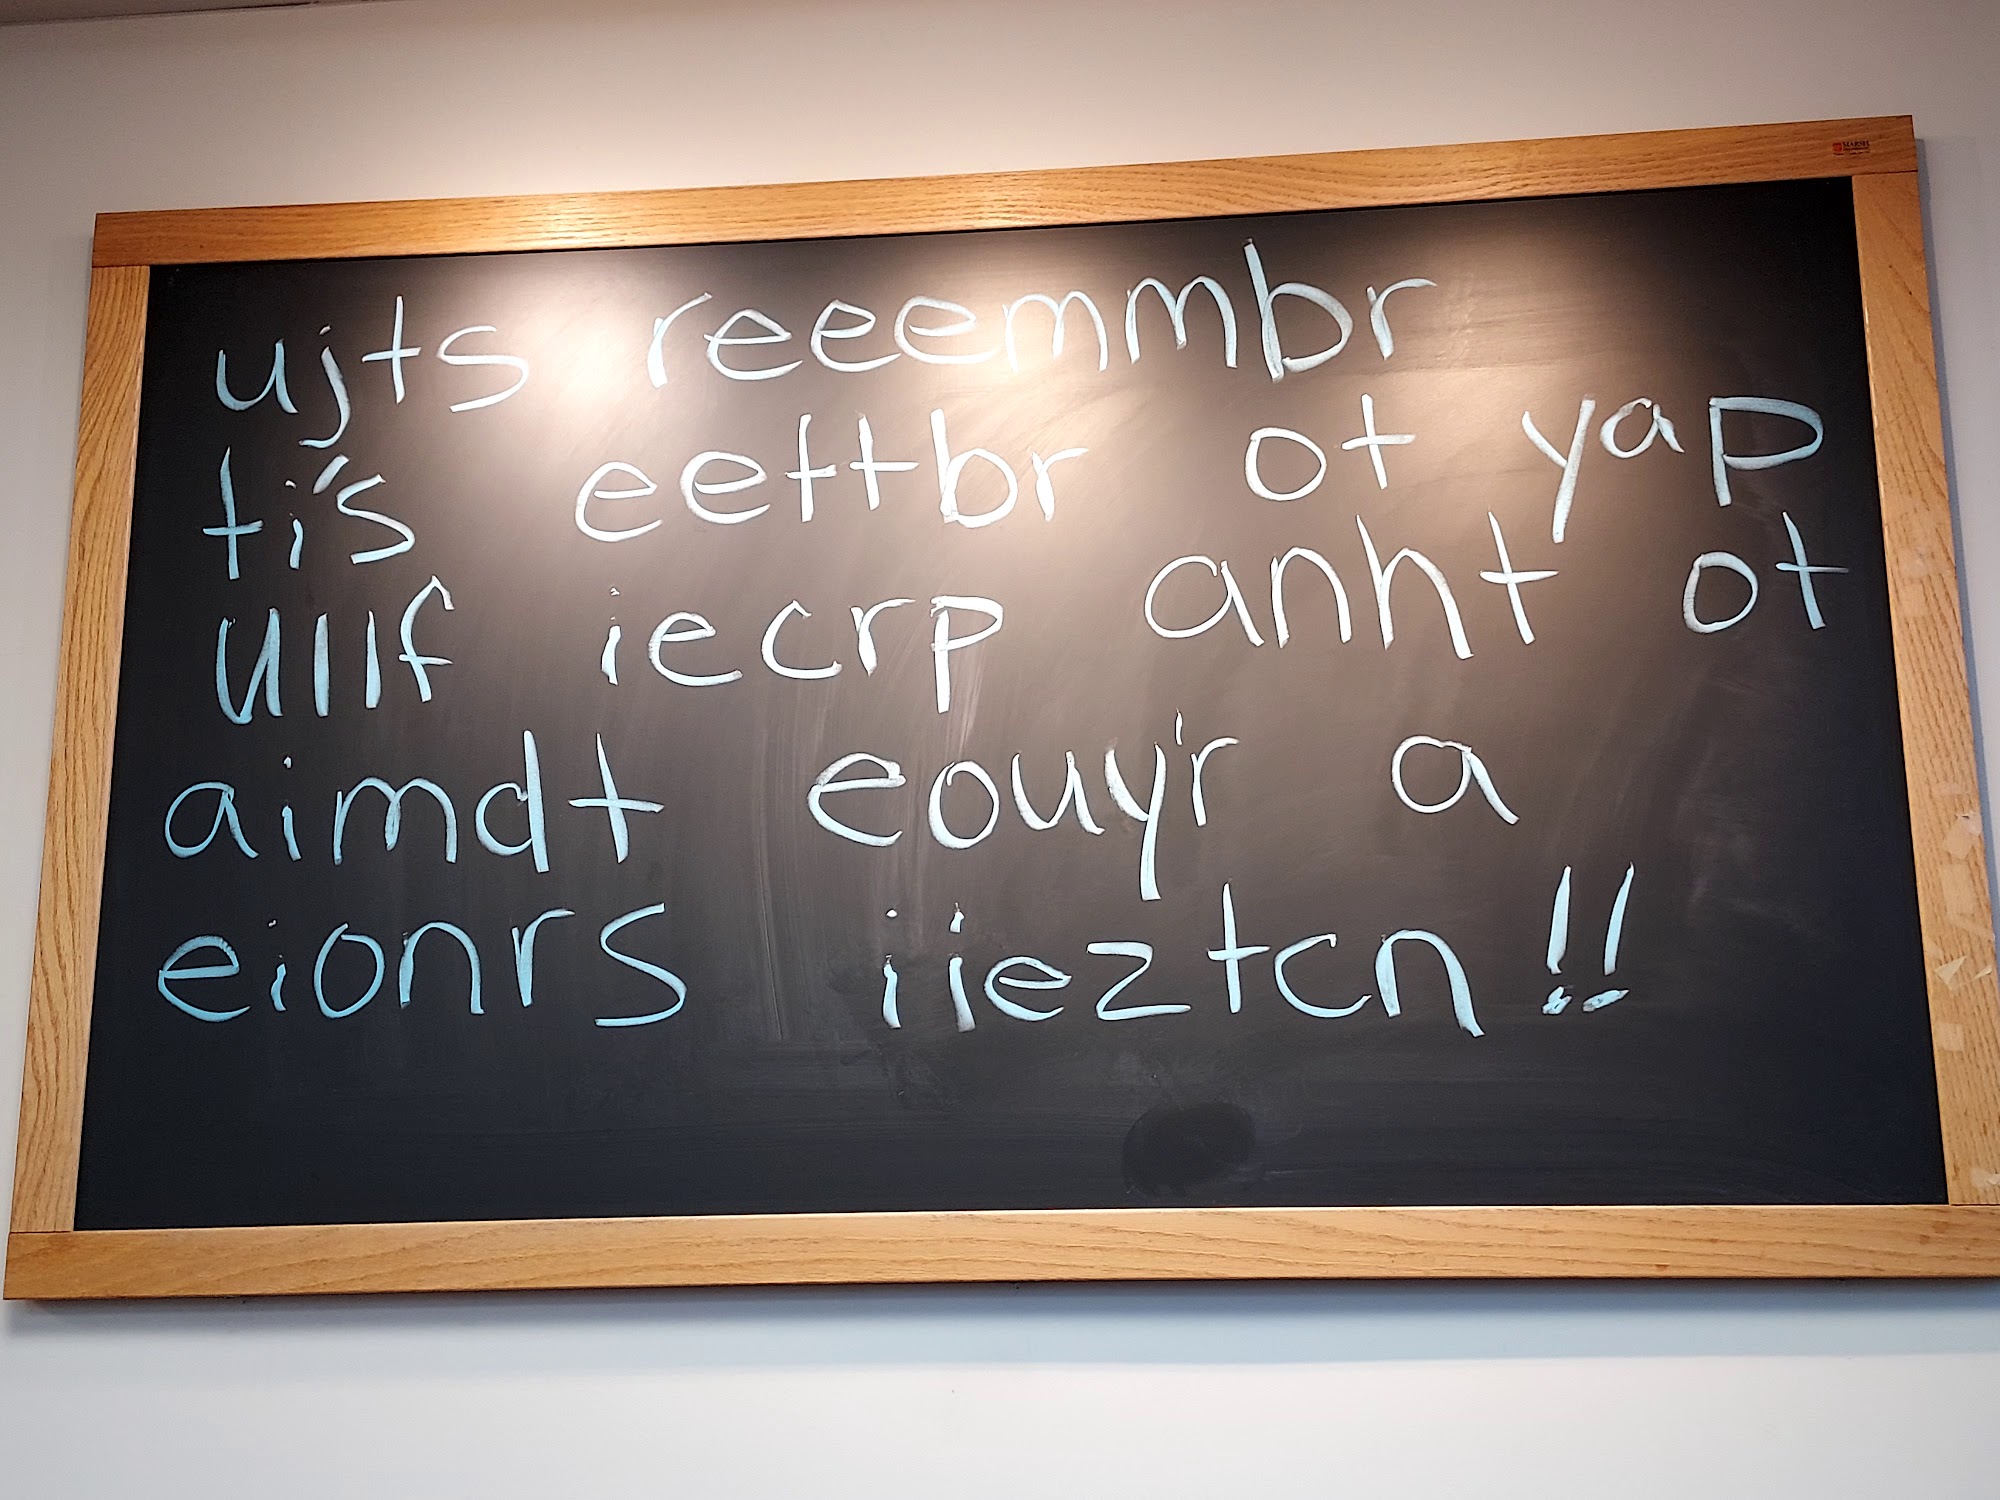 ujts reeemmbr
ti's eettbr ot yap
ullf iecrp anht ot
aimdt eouy'r a
eionrs iieztcn!!
MARSH